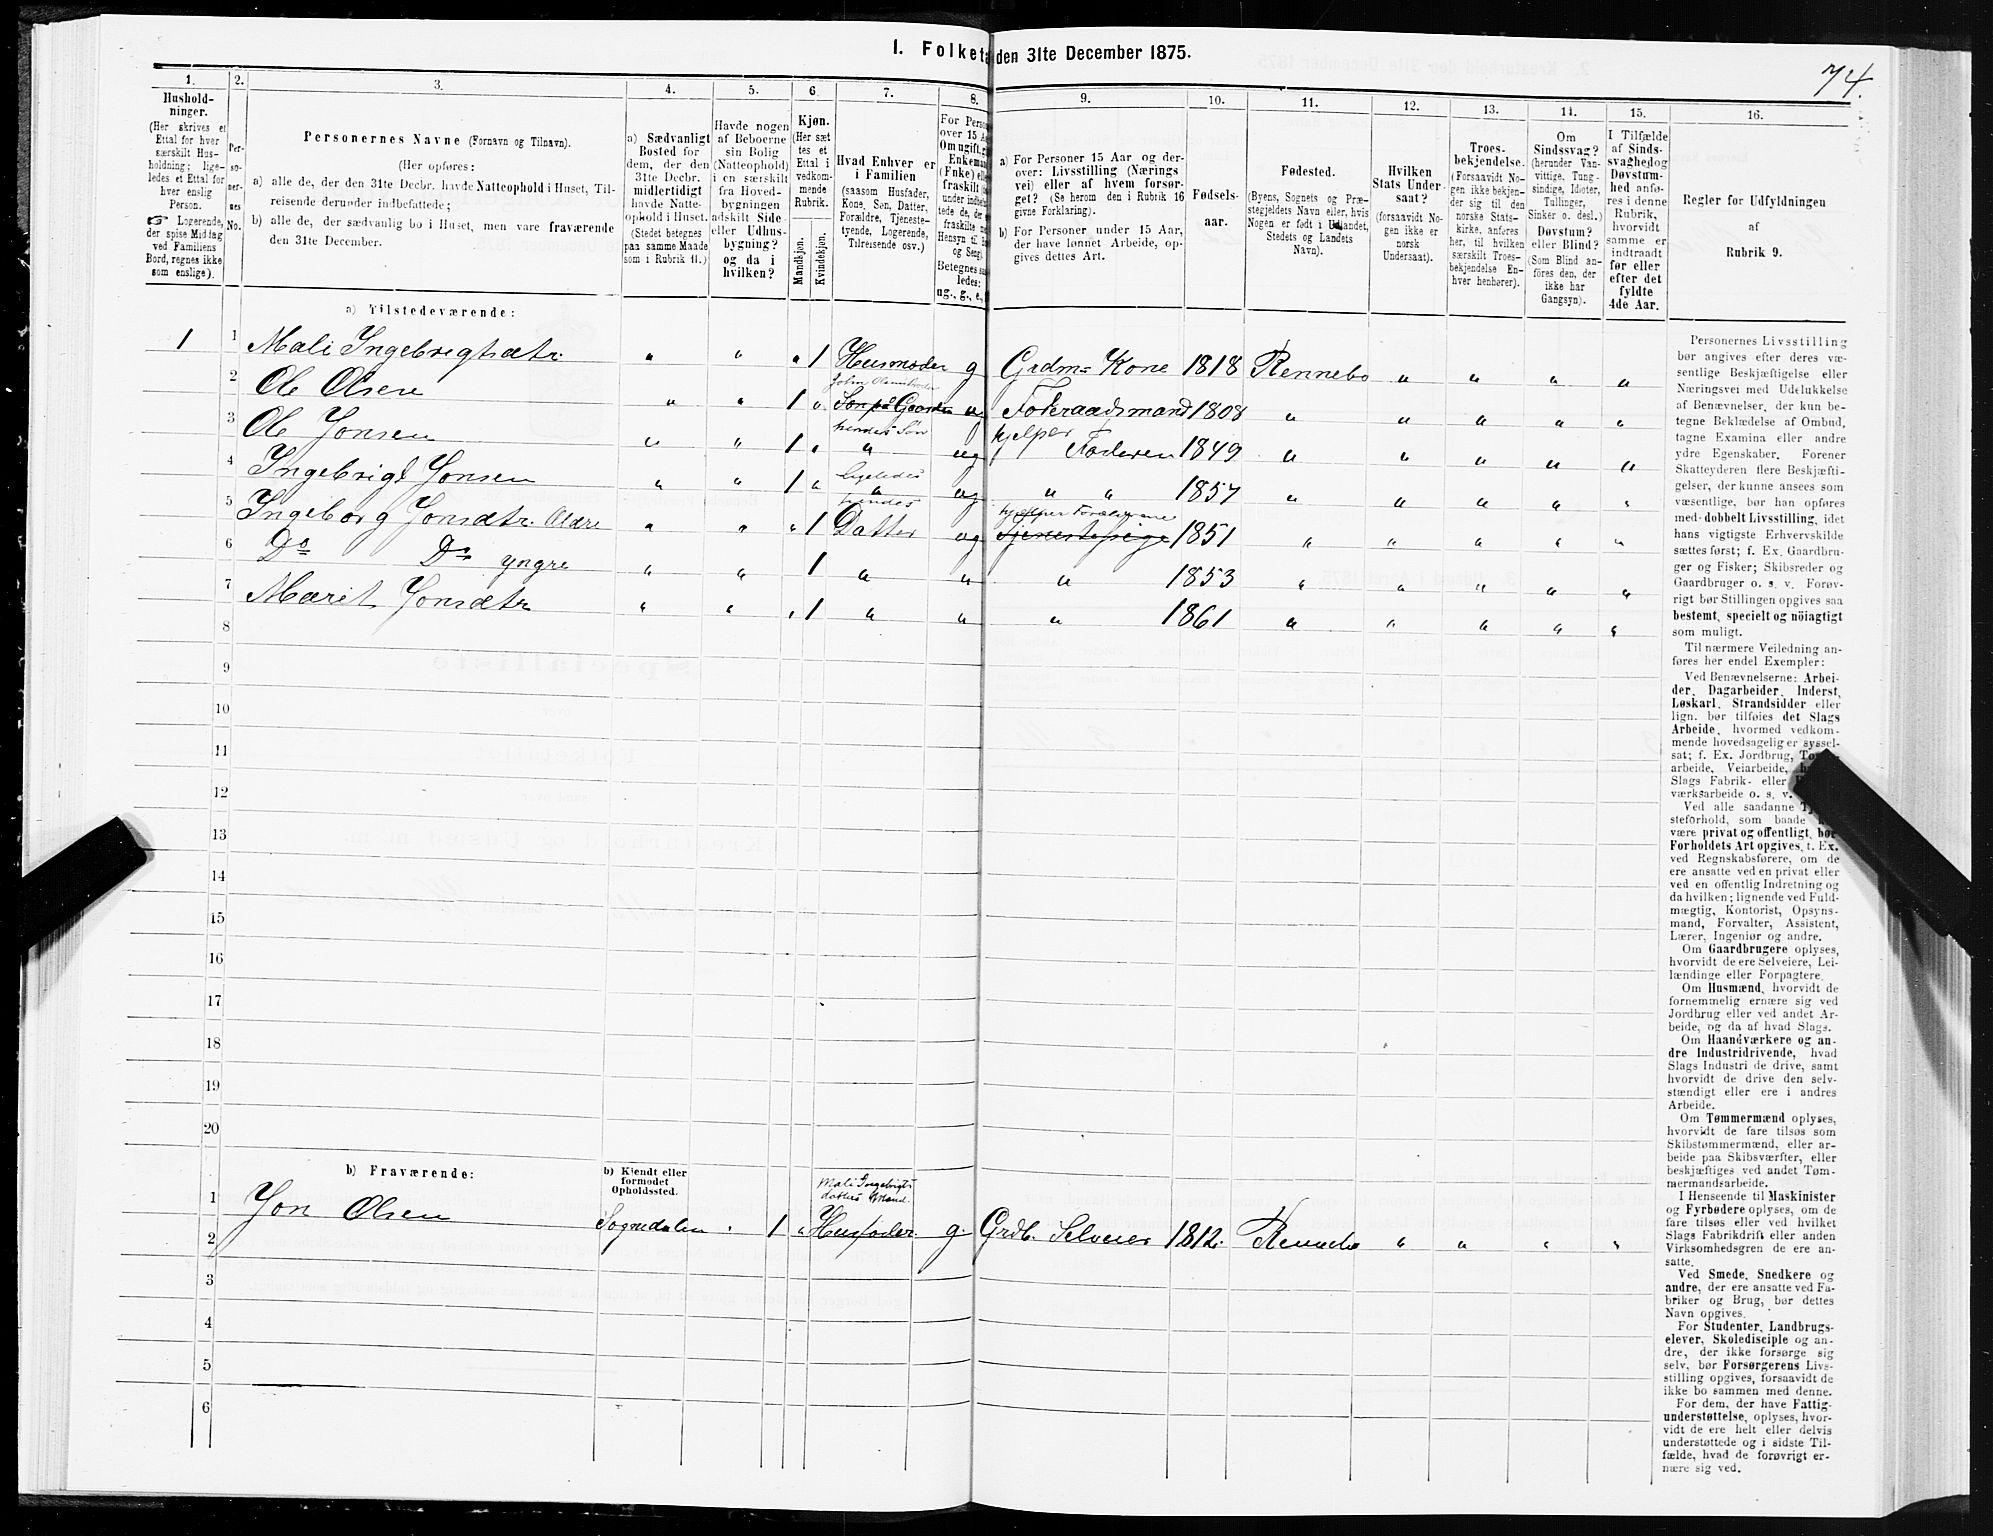 I. Folketa den 31te December 1875.
74.
1.
2.
3.
4.
5.
6.
7.
8.
9.
10.
11.
12.
13.
14.
15.
16.
Hushold-
ninger.
(Her skrives et
Ettal for hver
særskilt Hus-
holdning; lige-
ledes et Ettal for
hver enslig
Person.
☞ Logerende,
der spise Middag
ved Familiens
Bord, regnes ikke
som enslige).
Per-
so-
ner-
nes
No.
Personernes Navne (Fornavn og Tilnavn).
(Her opføres:
a) alle de, der den 31te Decbr. havde Natteophold i Huset, Til-
reisende derunder indbefattede;
b) alle de, der sædvanlig bo i Huset, men vare fraværende
den 31te December.
a) Sædvanligt
Bosted for
dem, der den
31te Decbr.
midlertidigt
havde Natte-
ophold i Huset.
(Stedet betegnes
paa samme Maade
som i Rubrik 11.)
Havde nogen
af Beboerne
sin Bolig
(Natteophold)
i en særskilt
fra Hoved-
bygningen
adskilt Side-
eller Udhus-
bygning?
og da i
hvilken?
Kjøn.
(Her sæt-
tes et
Ettal i
vedkom-
mende
Rubrik.
Mandkjøn.
Kvindekjøn.
Hvad Enhver er
i Familien
(saasom Husfader,
Kone, Søn, Datter,
Forældre, Tjeneste-
tyende, Logerende,
Tilreisende osv.)
For Perso
over 15 A
Om ugift, g
Enkemar
(Enke) ell
fraskilt
a) For Personer 15 Aar og der-
over: Livsstilling (Nærings
vei) eller af hvem forsør-
get? (Se herom den i Rubrik 16
givne Forklaring).
b) For Personer under 15 Aar,
der have lønnet Arbeide, op-
gives dettes Art.
Fødsels-
aar.
Fødested.
(Byens, Sognets og Præ-
stegjeldets Navn eller, hvis
Nogen er født i Udlandet,
Stedets og Landets
Navn).
Hvilken
Stats Under-
saat?
(forsaavidt No-
gen ikke er
norsk
Undersaat).
Troes-
bekjendelse.
(Forsaavidt No-
gen ikke bekjen-
der sig til den
norske Stats-
kirke, anføres
her, til hvilken
særskilt Troes-
bekjendelse En-
hver henhører).
Om
Sindssvag?
(herunder Van-
vittige, Tung-
sindige, Idioter,
Tullinger,
Sinker o. desl.)
Døvstum?
eller Blind?
(Som Blind an-
føres den, der
ikke har
Gangsyn).
I Tilfælde
af Sinds-
svaghed og
Døvstum-
hed anfø-
res i denne
Rubrik,
hvorvidt
samme er
indtraadt
før eller
efter det
fyldte
4de Aar.
Regler for Udfyldningen
af
Rubrik 9.
a) Tilstedeværende:
1 1 Mali Ingebrigtsdtr. " " " 1 Husmoder g Grdm= Kone 1818 Rennebo " " " "
2 Ole Olsen " " 1 " Søn på Gaarden ug Føderaadsmand 1808 " " " " "
hendes Søn
3 Ole Jonsen " " 1 " " ug hjelper Faderen 1849 " " " " "
ligeledes
4 Ingebrigt Jonsen " " 1 " " ug " " 1857 " " " " "
hendes
5 Ingeborg Jonsdtr. Ældre " " " 1 Datter ug Tjenestepige 1851 " " " " "
6 Do Do yngre " " 1 " " " 1853 " " " " "
7 Marit Jonsdtr " " " 1 " " " 1861 " " " " "
8
9
10
11
12
13
14
15
16
17
18
19
20
b) Fraværende:
b) Kjendt eller
formodet
Opholdssted.
Mali Ingebrigts
datters Mand.
1 Jon Olsen Sognedalen " 1 " Husfader g. Grdb. Selveier 1812. Rennebo " " " "
2
3
4
5
6
Personernes Livsstilling
bør angives efter deres væ-
sentlige Beskjæftigelse eller
Næringsvei med Udelukkelse
af Benævnelser, der kun be-
tegne Beklædelse af Ombud,
tagne Examina eller andre
ydre Egenskaber. Forener
Skatteyderen flere Beskjæfti-
gelser, der kunne ansees som
væsentlige, bør han opføres
med dobbelt Livsstilling, idet
hans vigtigste Erhvervskilde
sættes først; f. Ex. Gaardbru-
ger og Fisker; Skibsreder og
Gaardbruger o. s. v. Forøv-
rigt bør Stillingen opgives saa
bestemt, specielt og nöiagtigt
som muligt.
Til nærmere Veiledning an-
føres her endel Exempler:
Ved Benævnelserne: Arbei-
der, Dagarbeider, Inderst,
Løskarl, Strandsidder eller
lign. bør tilføies det Slags
Arbeide, hvormed vedkom-
mende hovedsagelig er syssel-
sat; f. Ex. Jordbrug,
arbeide, Veiarbeide,
Slags Fabrik- eller
værksarbeide o. s. v.
Ved alle saadanne
steforhold, som baade
være privat og offentligt, bør
Forholdets Art opgives, t. Ex.
ved Regnskabsførere, om de
ere ansatte ved en privat eller
ved en offentlig Indretning og
da hvilken; lignende ved Fuld-
mægtig, Kontorist, Opsyns-
mand, Forvalter, Assistent,
Lærer, Ingeniør og andre.
Om Gaardbrugere oplyses,
hvorvidt de ere Selveiere, Lei-
lændinge eller Forpagtere.
Om Husmænd, hvorvidt de
fornemmelig ernære sig ved
Jordbrug eller ved andet Ar-
beide, og da af hvad Slags.
Om Haandværkere og an-
dre Industridrivende, hvad
Slags Industri de drive, samt
hvorvidt de drive den selv-
stændigt eller ere i andres
Arbeide.
Om Tømmermænd oplyses,
hvorvidt de fare tilsøs som
Skibstømmermænd, eller ar-
beide paa Skibsværfter, eller
beskjæftiges ved andet Tøm-
mermandsarbeide.
I Henseende til Maskinister
og Fyrbødere oplyses, om de
fare tilsøs eller ved hvilket
Slags Fabrikdrift eller anden
Virksomhedsgren de ere an-
satte.
Ved Smede, Snedkere og
andre, der ere ansatte ved Fa-
briker og Brug, bør dettes
Navn opgives.
For Studenter, Landbrugs-
elever, Skoledisciple og an-
dre, der ikke forsørge sig
selv, bør Forsørgerens Livs-
stilling opgives, forsaavidt de
ikke bo sammen med denne.
For dem, der have Fattig-
understøttelse, oplyses, hvor-
vidt de ere helt eller delvis
understøttede og i sidste Til-
fælde, hvad de forøvrigt er-
nære sig ved.